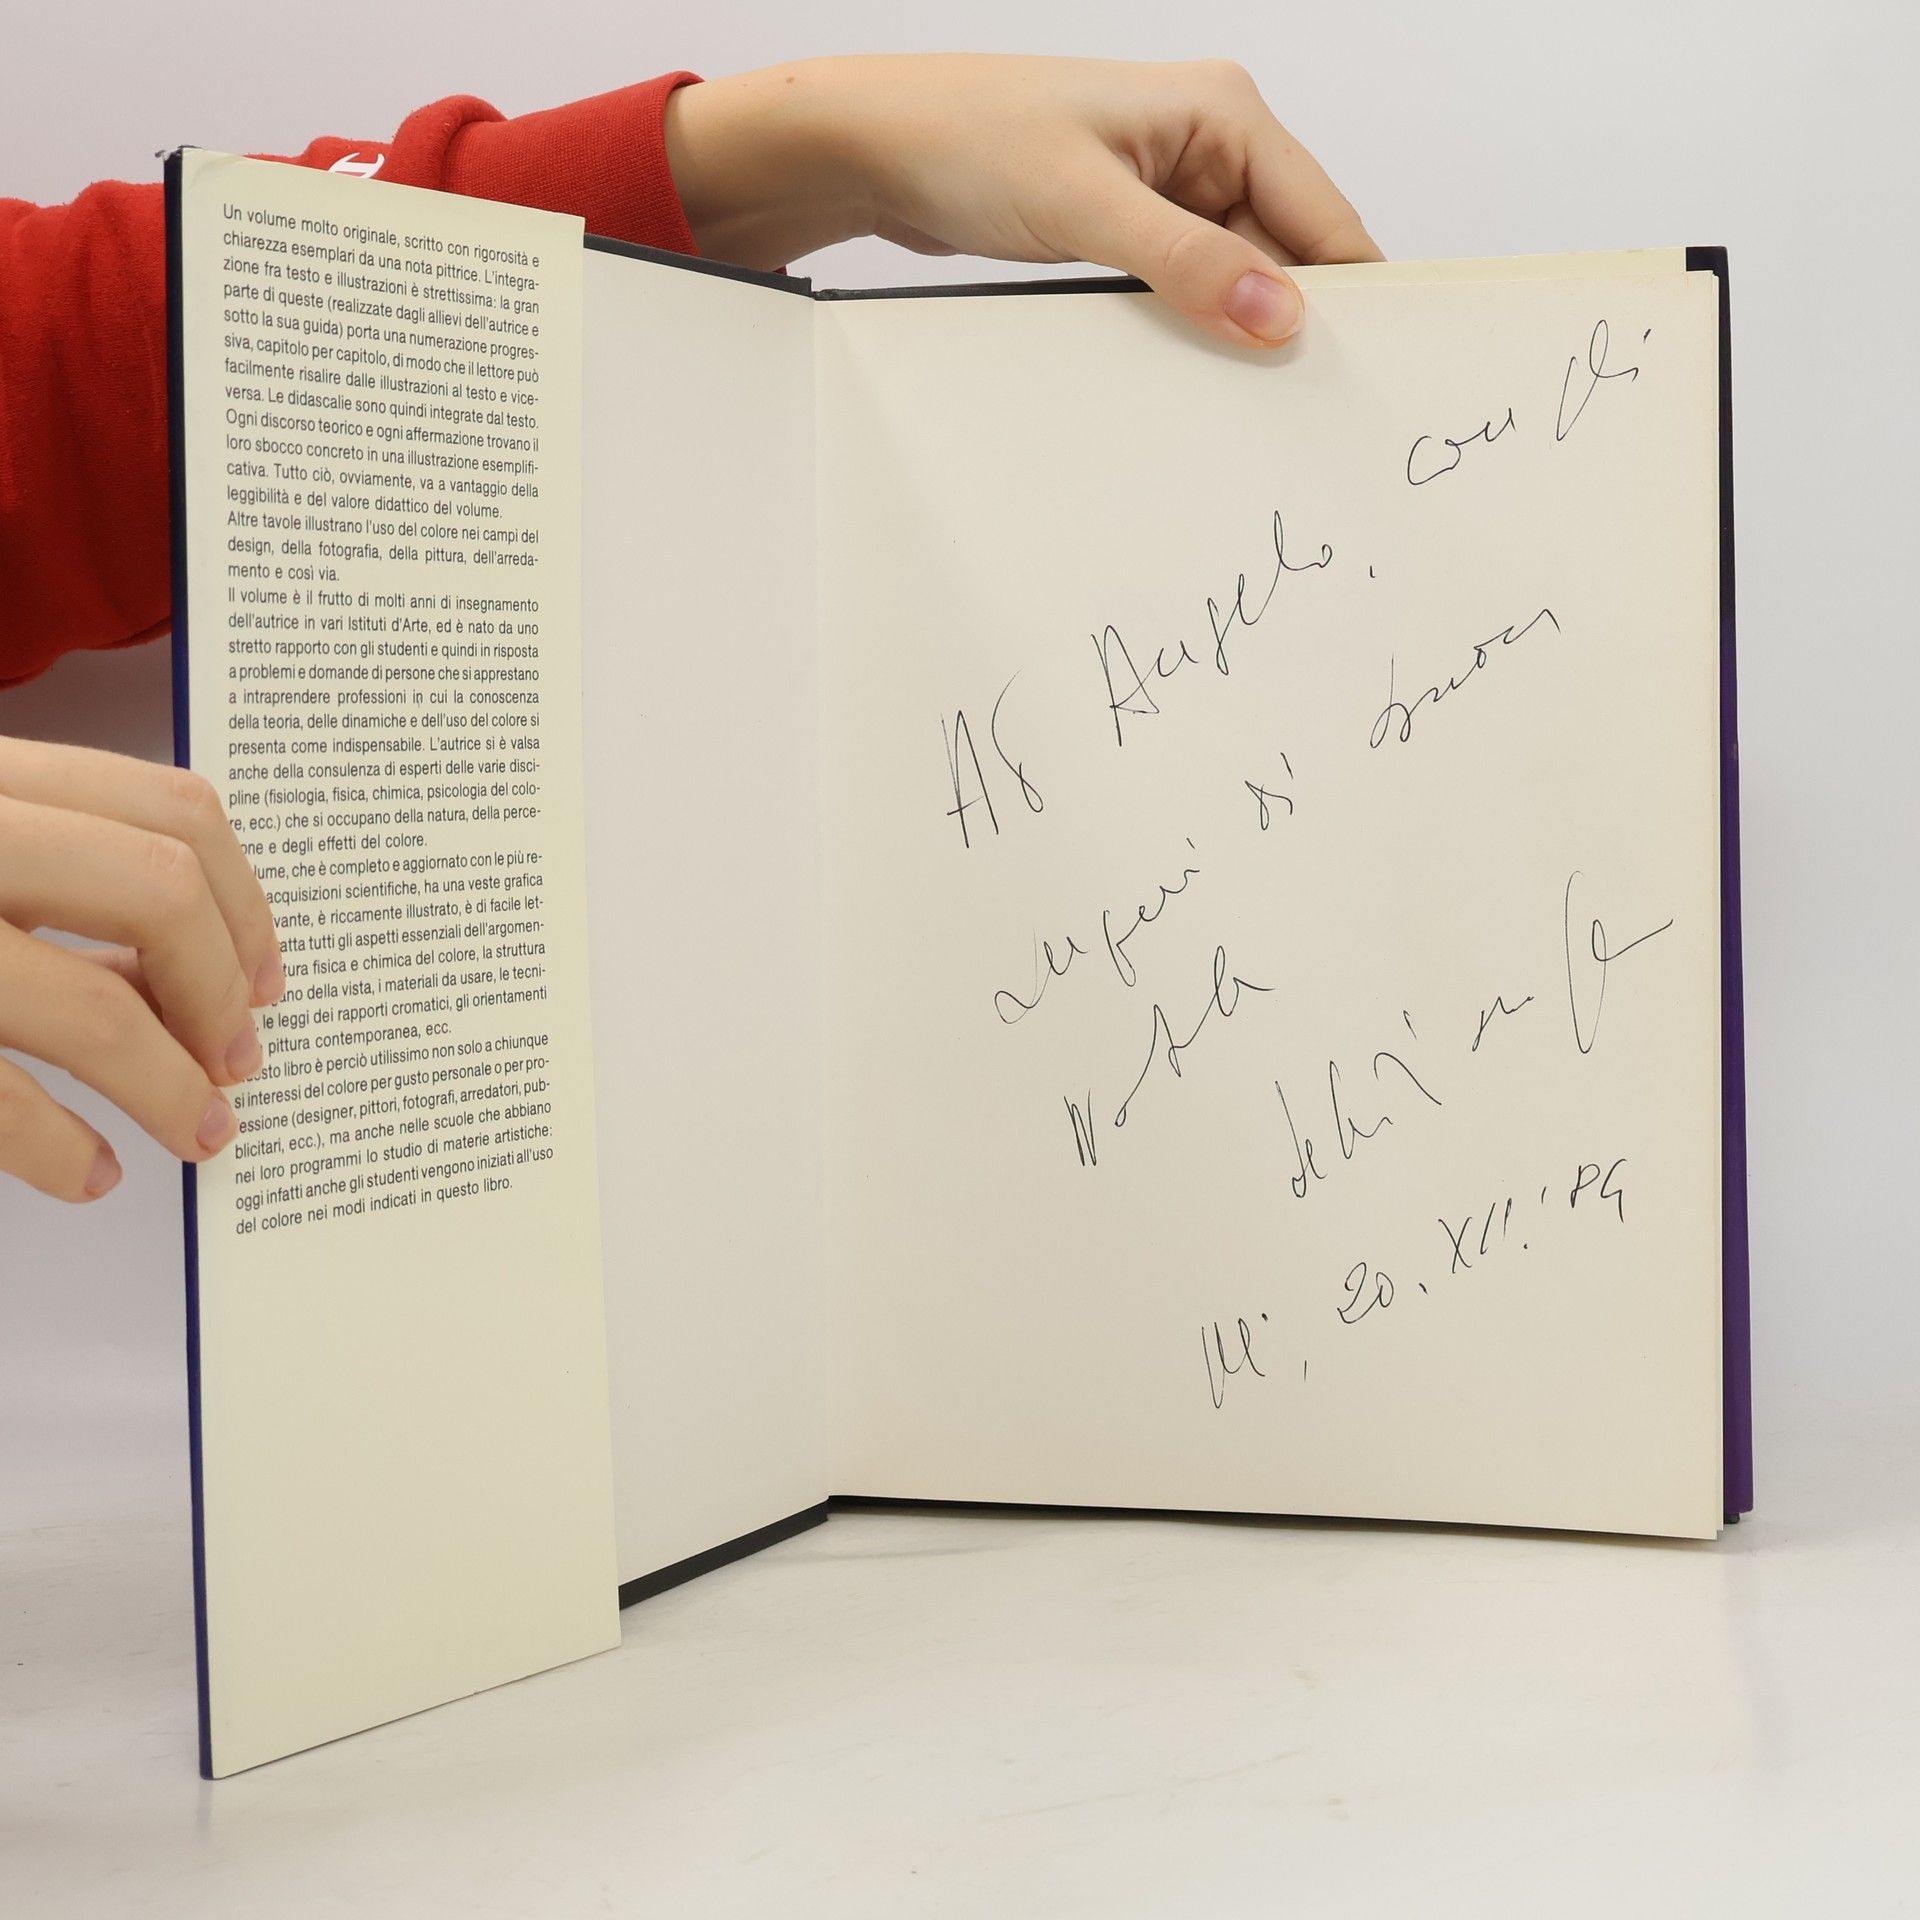 Un volume molto originale, scritto con rigorosità e
chiarezza esemplari da una nota pittrice. L'integra-
zione fra testo e illustrazioni è strettissima: la gran
parte di queste (realizzate dagli allievi dell'autrice e
sotto la sua guida) porta una numerazione progres-
siva, capitolo per capitolo, di modo che il lettore può
facilmente risalire dalle illustrazioni al testo e vice-
versa. Le didascalie sono quindi integrate dal testo.
Ogni discorso teorico e ogni affermazione trovano il
loro sbocco concreto in una illustrazione esemplifi-
cativa. Tutto ciò, ovviamente, va a vantaggio della
leggibilità e del valore didattico del volume.
Altre tavole illustrano l'uso del colore nei campi del
design, della fotografia, della pittura, dell'arreda-
mento e così via.
Il volume è il frutto di molti anni di insegnamento
dell'autrice in vari Istituti d'Arte, ed è nato da uno
stretto rapporto con gli studenti e quindi in risposta
a problemi e domande di persone che si apprestano
a intraprendere professioni in cui la conoscenza
della teoria, delle dinamiche e dell'uso del colore si
presenta come indispensabile. L'autrice si è valsa
anche della consulenza di esperti delle varie disci-
pline (fisiologia, fisica, chimica, psicologia del colo-
re, ecc.) che si occupano della natura, della perce-
one e degli effetti del colore.
lume, che è completo e aggiornato con le più re-
acquisizioni scientifiche, ha una veste grafica
vante, è riccamente illustrato, è di facile let-
atta tutti gli aspetti essenziali dell'argomen-
tura fisica e chimica del colore, la struttura
ano della vista, i materiali da usare, le tecni-
, le leggi dei rapporti cromatici, gli orientamenti
pittura contemporanea, ecc.
sto libro è perciò utilissimo non solo a chiunque
si interessi del colore per gusto personale o per pro-
essione (designer, pittori, fotografi, arredatori, pub-
blicitari, ecc.), ma anche nelle scuole che abbiano
nei loro programmi lo studio di materie artistiche:
oggi infatti anche gli studenti vengono iniziati all'uso
del colore nei modi indicati in questo libro.
Ad Angelo, con gli
auguri di buon
Natale
Mi, 20. XII. '89